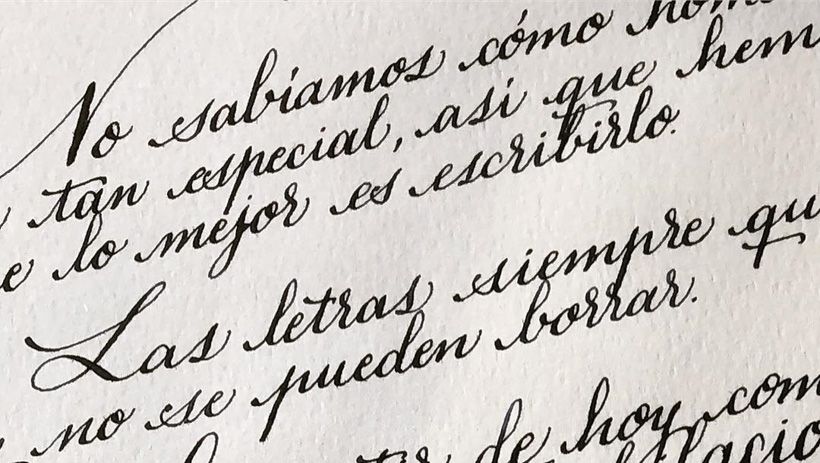 No sabíamos cómo
tan especial, así que
lo mejor es escribirlo.
Las letras siempre
no se pueden borrar.
de hoy